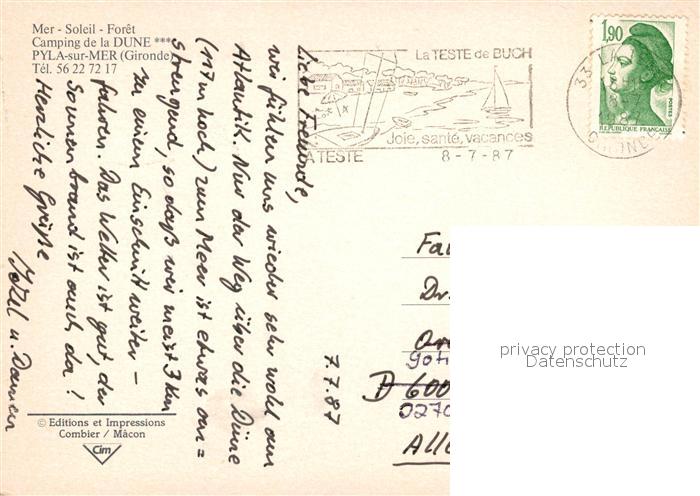 Mer - Soleil - Forêt
Camping de la DUNE ***
PYLA-sur-MER (Gironde)
Tél. 56 22 72 17
La TESTE de BUCH
Joie, santé, vacances
LA TESTE
8-7-87
33 LA
GIRONDE
1,90
POSTES
REPUBLIQUE FRANÇAISE
Liebe Freunde,
wir fühlen uns wieder sehr wohl am
Atlantik. Nur der Weg über die Düne
(117m hoch) zum Meer ist etwas an=
strengend, so daß wir meist 3 km
zu einem Einschnitt weiter-
fahren. Das Wetter ist gut, der
Sonnenbrand ist auch da!
Herzliche Grüße
u. Damen
7.7.87
Fa
Dr.
D 600
0270
Alle
© Editions et Impressions
Combier / Mâcon
Cim
privacy protection
Datenschutz